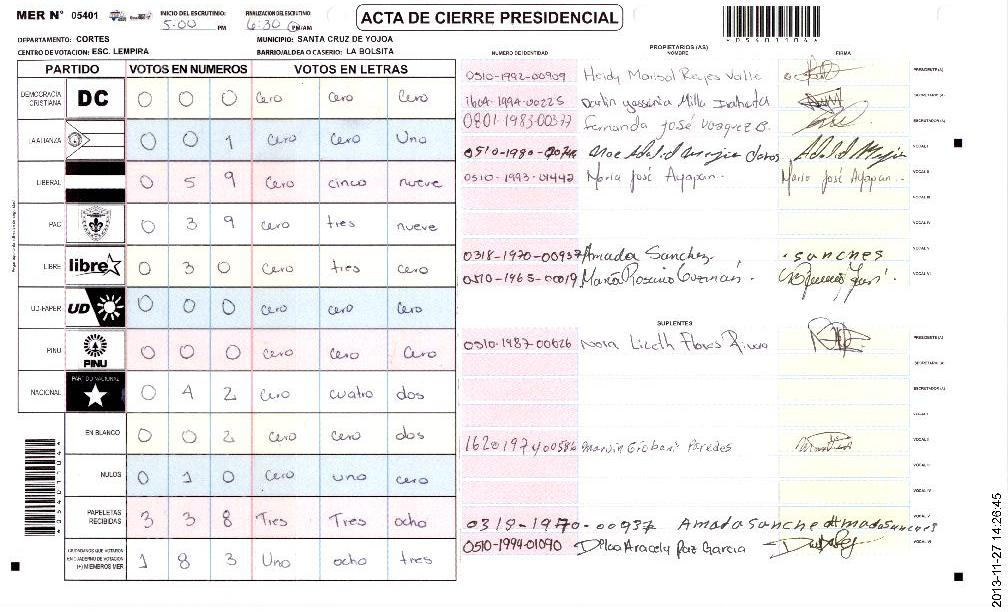 MER N° 05401 INICIO DEL ESCRUTINIO: 5:00 PM FINALIZACION DEL ESCRUTINIO: 6:30 PM/AM
ACTA DE CIERRE PRESIDENCIAL
DEPARTAMENTO: CORTES MUNICIPIO: SANTA CRUZ DE YOJOA
CENTRO DE VOTACION: ESC. LEMPIRA BARRIO/ALDEA O CASERIO: LA BOLSITA
PARTIDO VOTOS EN NUMEROS VOTOS EN LETRAS
DEMOCRACIA CRISTIANA DC 0 0 0 Cero Cero Cero
LA ALIANZA 0 0 1 Cero Cero Uno
LIBERAL 0 5 9 Cero cinco nueve
PAC 0 3 9 Cero tres nueve
LIBRE libre 0 3 0 Cero tres Cero
UD-FAPER UD 0 0 0 Cero Cero Cero
PINU PINU 0 0 0 Cero Cero Cero
NACIONAL PARTIDO NACIONAL 0 4 2 Cero cuatro dos
EN BLANCO 0 0 2 Cero Cero dos
NULOS 0 1 0 Cero uno cero
PAPELETAS RECIBIDAS 3 3 8 Tres Tres ocho
CIUDADANOS QUE VOTARON EN CUADERNO DE VOTACION (+) MIEMBROS MER 1 8 3 Uno ocho tres
PROPIETARIOS (AS)
NUMERO DE IDENTIDAD NOMBRE FIRMA
0510-1992-00909 Heidy Marisol Reyes Valle PRESIDENTE (A)
1604-1994-00225 Milla SECRETARIO (A)
0801-1983-00377 Fernanda José Vasquez B. ESCRUTADOR (A)
0510-1980- VOCAL I
0510-1993-01442 Maria José Ayapan Maria José Ayapan VOCAL II
VOCAL III
VOCAL IV
0318-1970-00937 Amada Sanchez sanches VOCAL V
0510-1965-00019 Maria Rosario Guzman VOCAL VI
SUPLENTES
0510-1987-00626 Nora Lizeth Flores PRESIDENTE (A)
SECRETARIO (A)
ESCRUTADOR (A)
VOCAL I
1620197400586 Marvin Paredes VOCAL II
VOCAL III
VOCAL IV
0318-1970-00937 Amada Sanche Amadasanches VOCAL V
0510-1994-01090 Aracely Paz Garcia VOCAL VI
2013-11-27 14:26:45